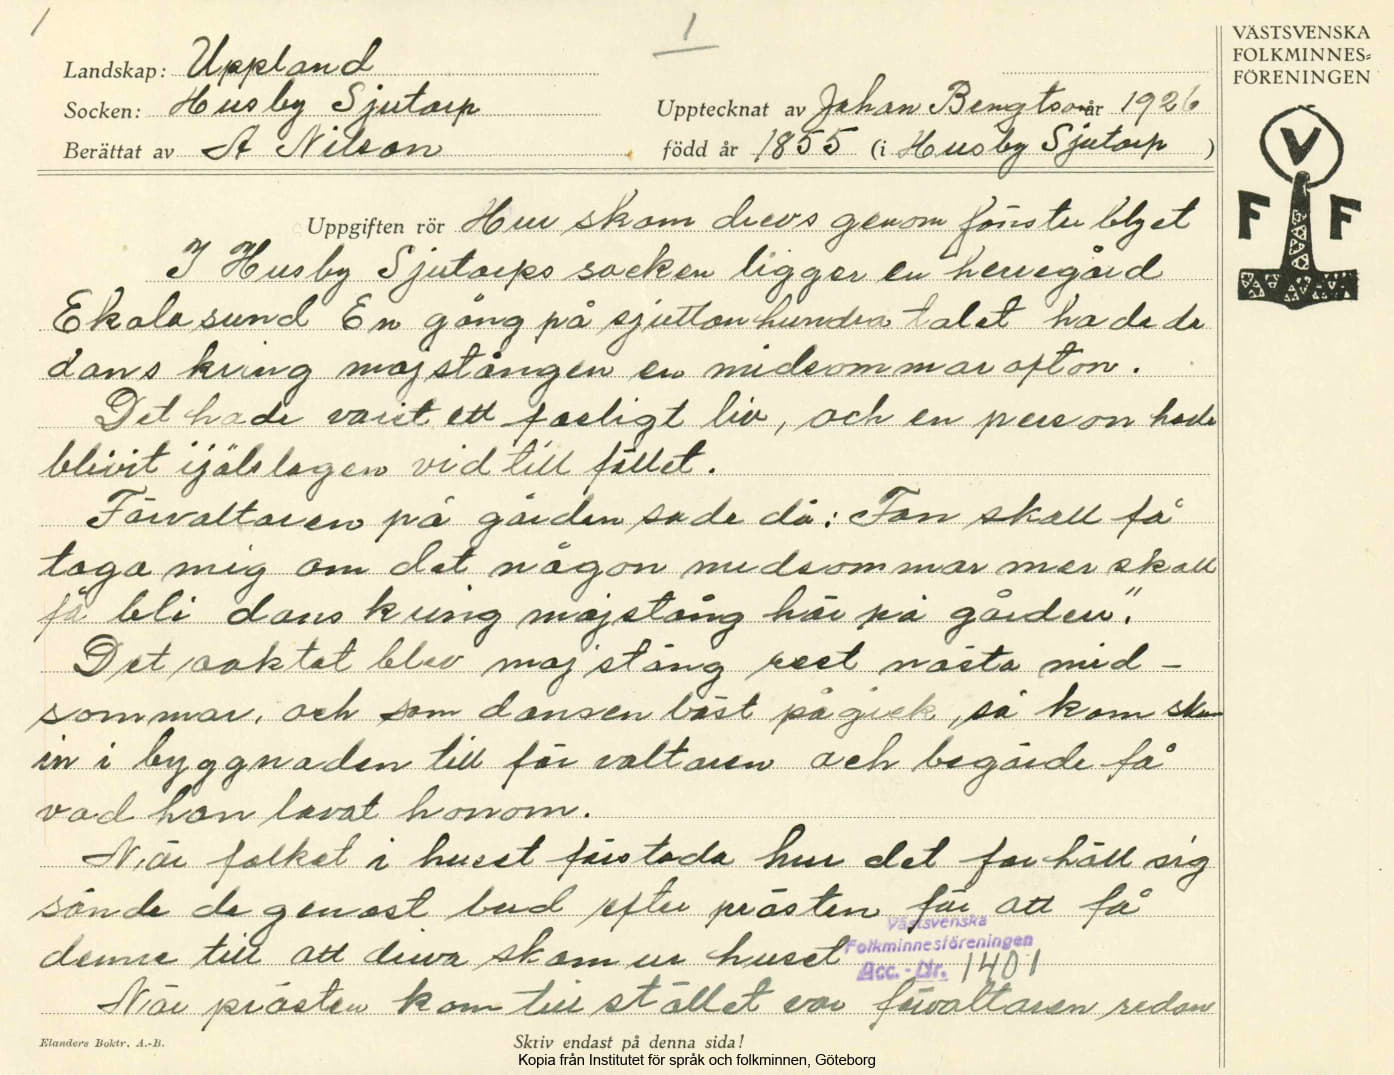 1
1
VÄSTSVENSKA
FOLKMINNES=
FÖRENINGEN
V
F F
Landskap: Uppland
Socken: Husby Sjutorp
Upptecknat av Johan Bengtson år 1926
Berättat av A Nilson
född år 1855 (i Husby Sjutorp )
Uppgiften rör Hur skam drevs genom fönster blyet
I Husby Sjutorps socken ligger en herregård
Ekolasund En gång på sjuttonhundra talet hade de
dans kring majstången en midsommar afton.
Det hade varit ett farligt liv, och en person hade
blivit ijälslagen vid till fället.
Förvaltaren på gården sade då: Fan skall få
taga mig om det någon midsommar mer skall
få bli dans kring majstång här på gården".
Det oaktat blev majstång rest nästa mid-
sommar, och som dansen bäst pågick, så kom skam
in i byggnaden till för valtaren och begärde få
vad han lovat honom.
När folket i huset förstod hur det for höll sig
sände de genast bud efter prästen för att få
denne till att driva skam ur huset
När prästen kom till stället var förvaltaren redan
Västsvenska
Folkminnesföreningen
Acc. - Nr. 1401
Elanders Boktr. A.-B.
Skriv endast på denna sida!
Kopia från Institutet för språk och folkminnen, Göteborg